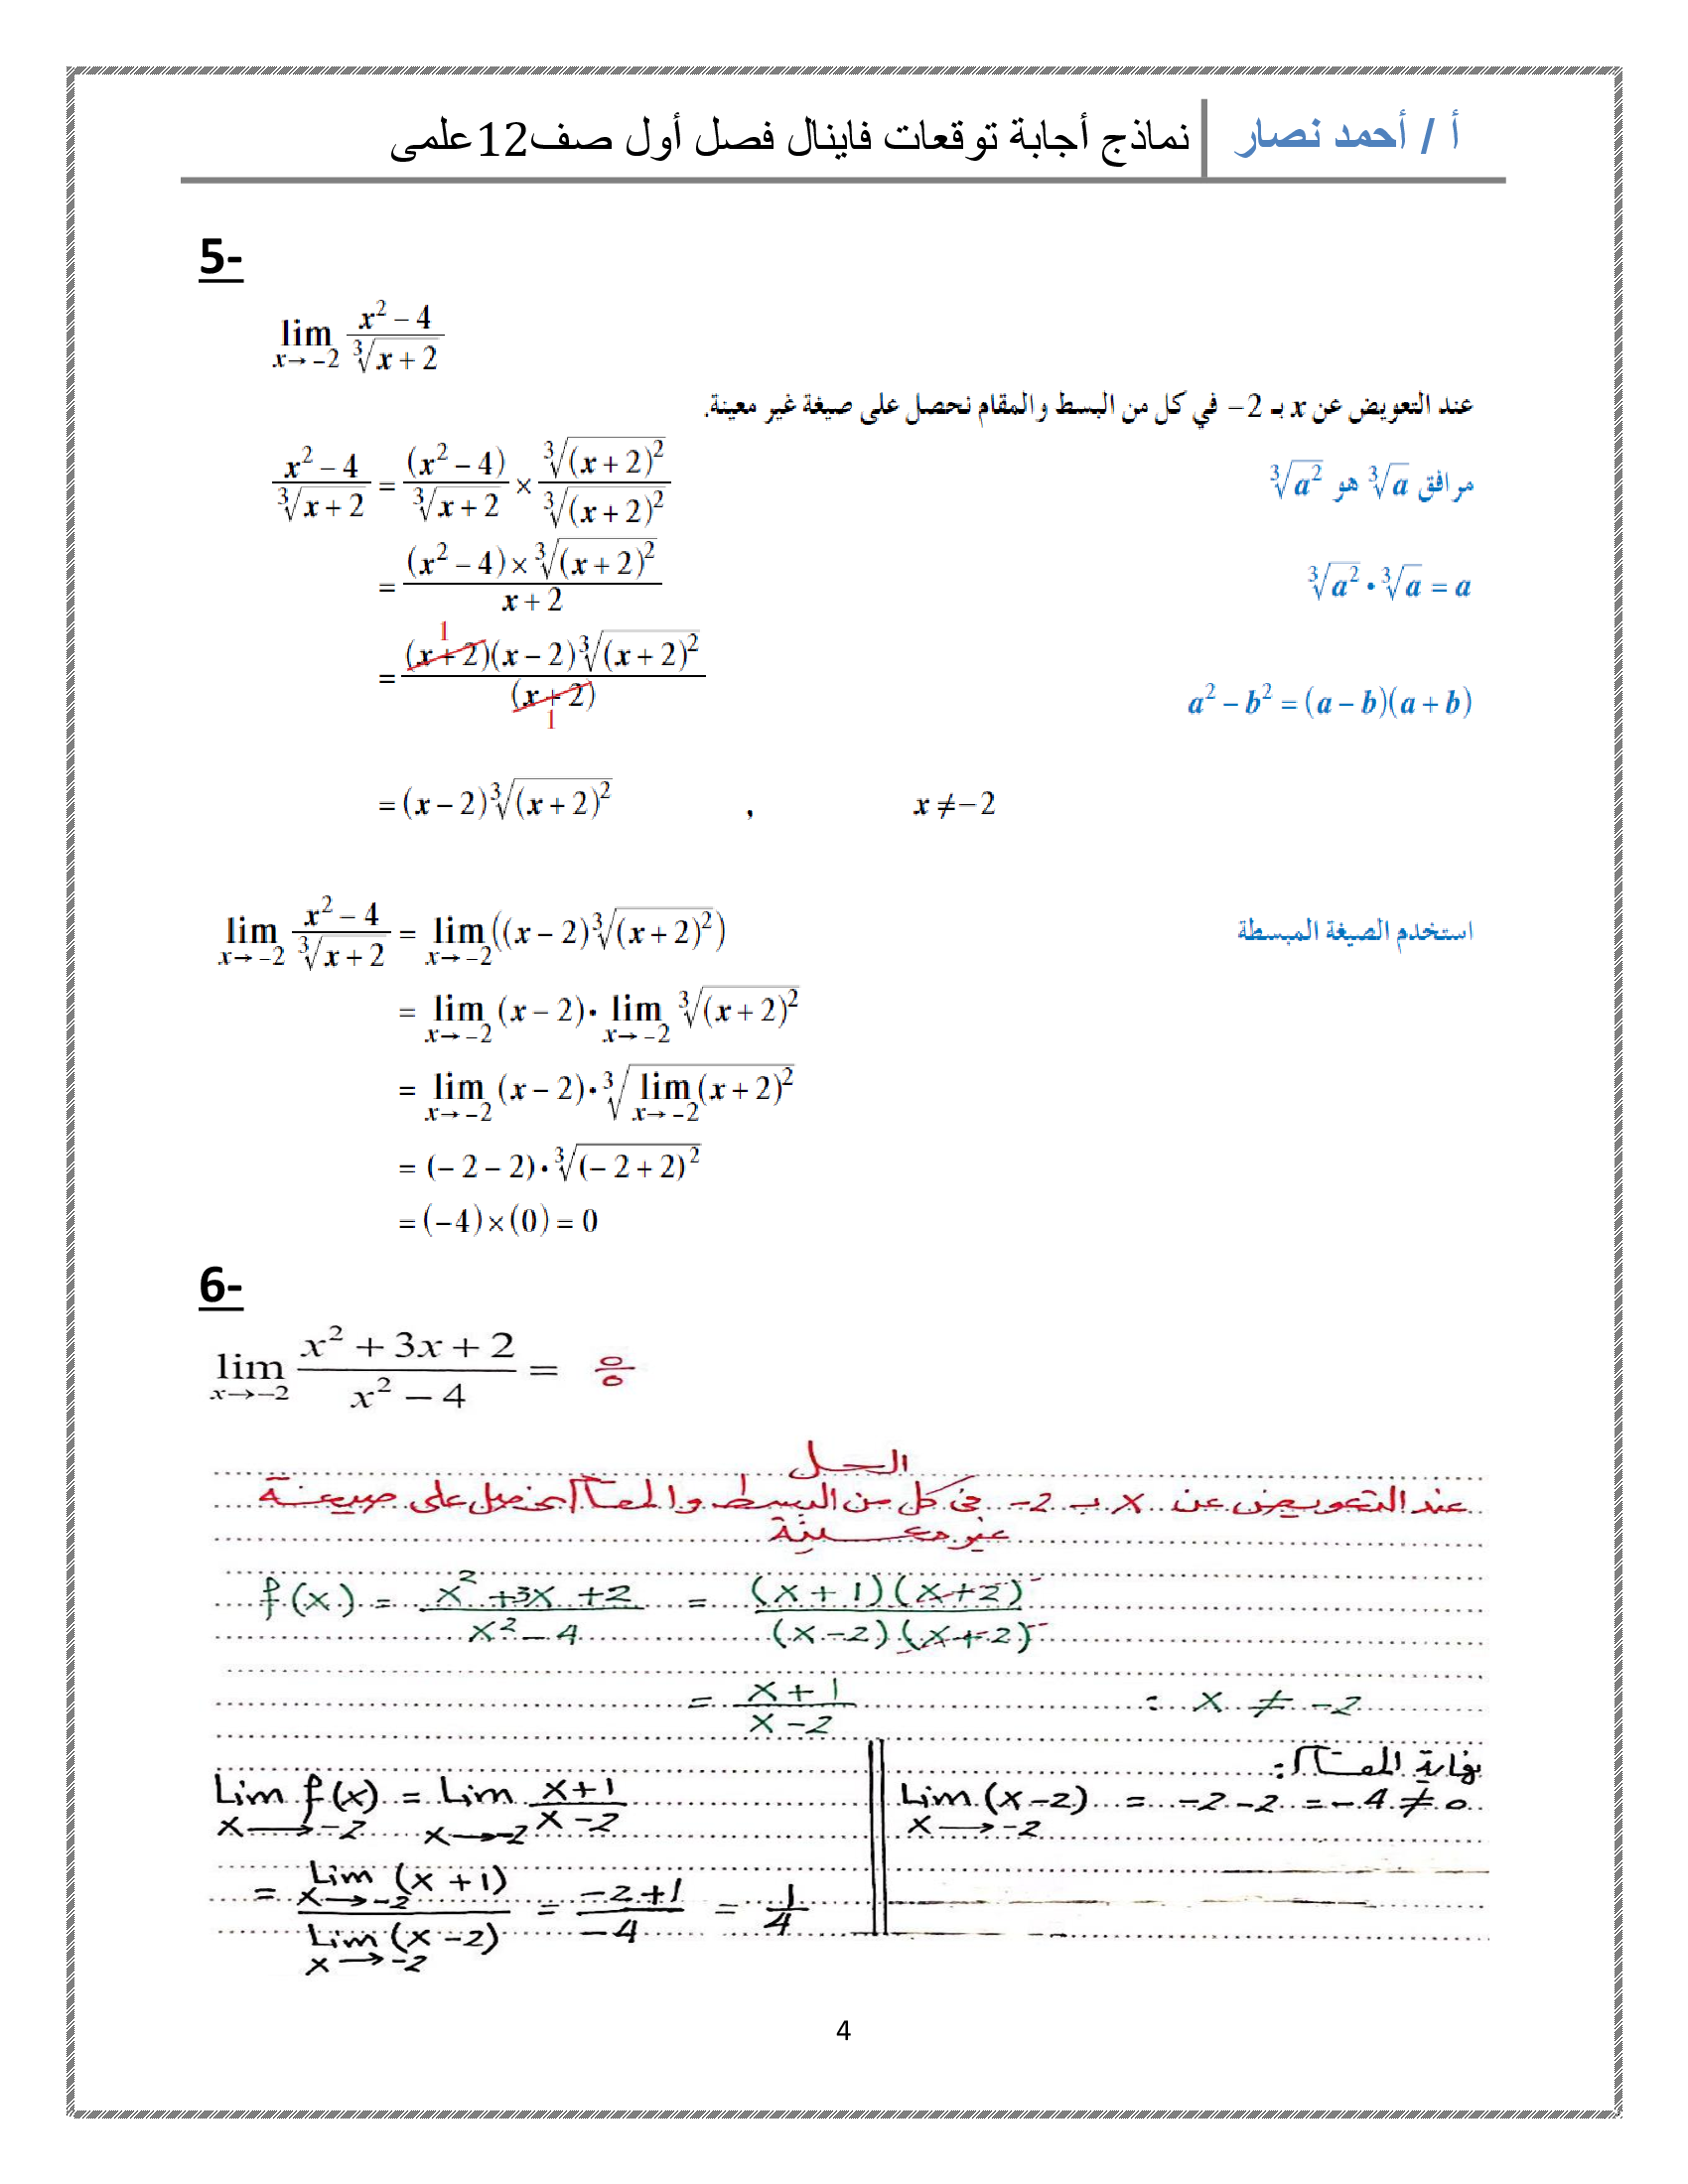 أ / أحمد نصار | نماذج أجابة توقعات فاينال فصل أول صف12علمى
5-
lim x→−2 (x² − 4)/(∛(x + 2))
عند التعويض عن x بـ 2− في كل من البسط والمقام نحصل على صيغة غير معينة.
(x² − 4)/(∛(x + 2)) = (x² − 4)/(∛(x + 2)) × (∛((x + 2)²))/(∛((x + 2)²)) مرافق ∛a هو ∛(a²)
= ((x² − 4) × ∛((x + 2)²))/(x + 2) ∛(a²) • ∛a = a
= ((x + 2)(x − 2)∛((x + 2)²))/((x + 2)) 1 1 a² − b² = (a − b)(a + b)
= (x − 2)∛((x + 2)²) , x ≠ −2
lim x→−2 (x² − 4)/(∛(x + 2)) = lim x→−2 ((x − 2)∛((x + 2)²)) استخدم الصيغة المبسطة
= lim x→−2 (x − 2) • lim x→−2 ∛((x + 2)²)
= lim x→−2 (x − 2) • ∛(lim x→−2 (x + 2)²)
= (− 2 − 2) • ∛((− 2 + 2)²)
= (−4) × (0) = 0
6-
lim x→−2 (x² + 3x + 2)/(x² − 4) = 0/0
الحل
عند التعويض عن x بـ 2- في كل من البسط والمقام نحصل على صيغة
غير معينة
f(x) = (x² + 3x + 2)/(x² − 4) = ((x + 1)(x + 2))/((x − 2)(x + 2))
= (x + 1)/(x − 2) : x ≠ −2
نهاية المقام:
Lim x→−2 f(x) = Lim x→−2 (x + 1)/(x − 2) Lim x→−2 (x − 2) = −2 − 2 = −4 ≠ 0
= (Lim x→−2 (x + 1))/(Lim x→−2 (x − 2)) = (−2 + 1)/(−4) = 1/4
4